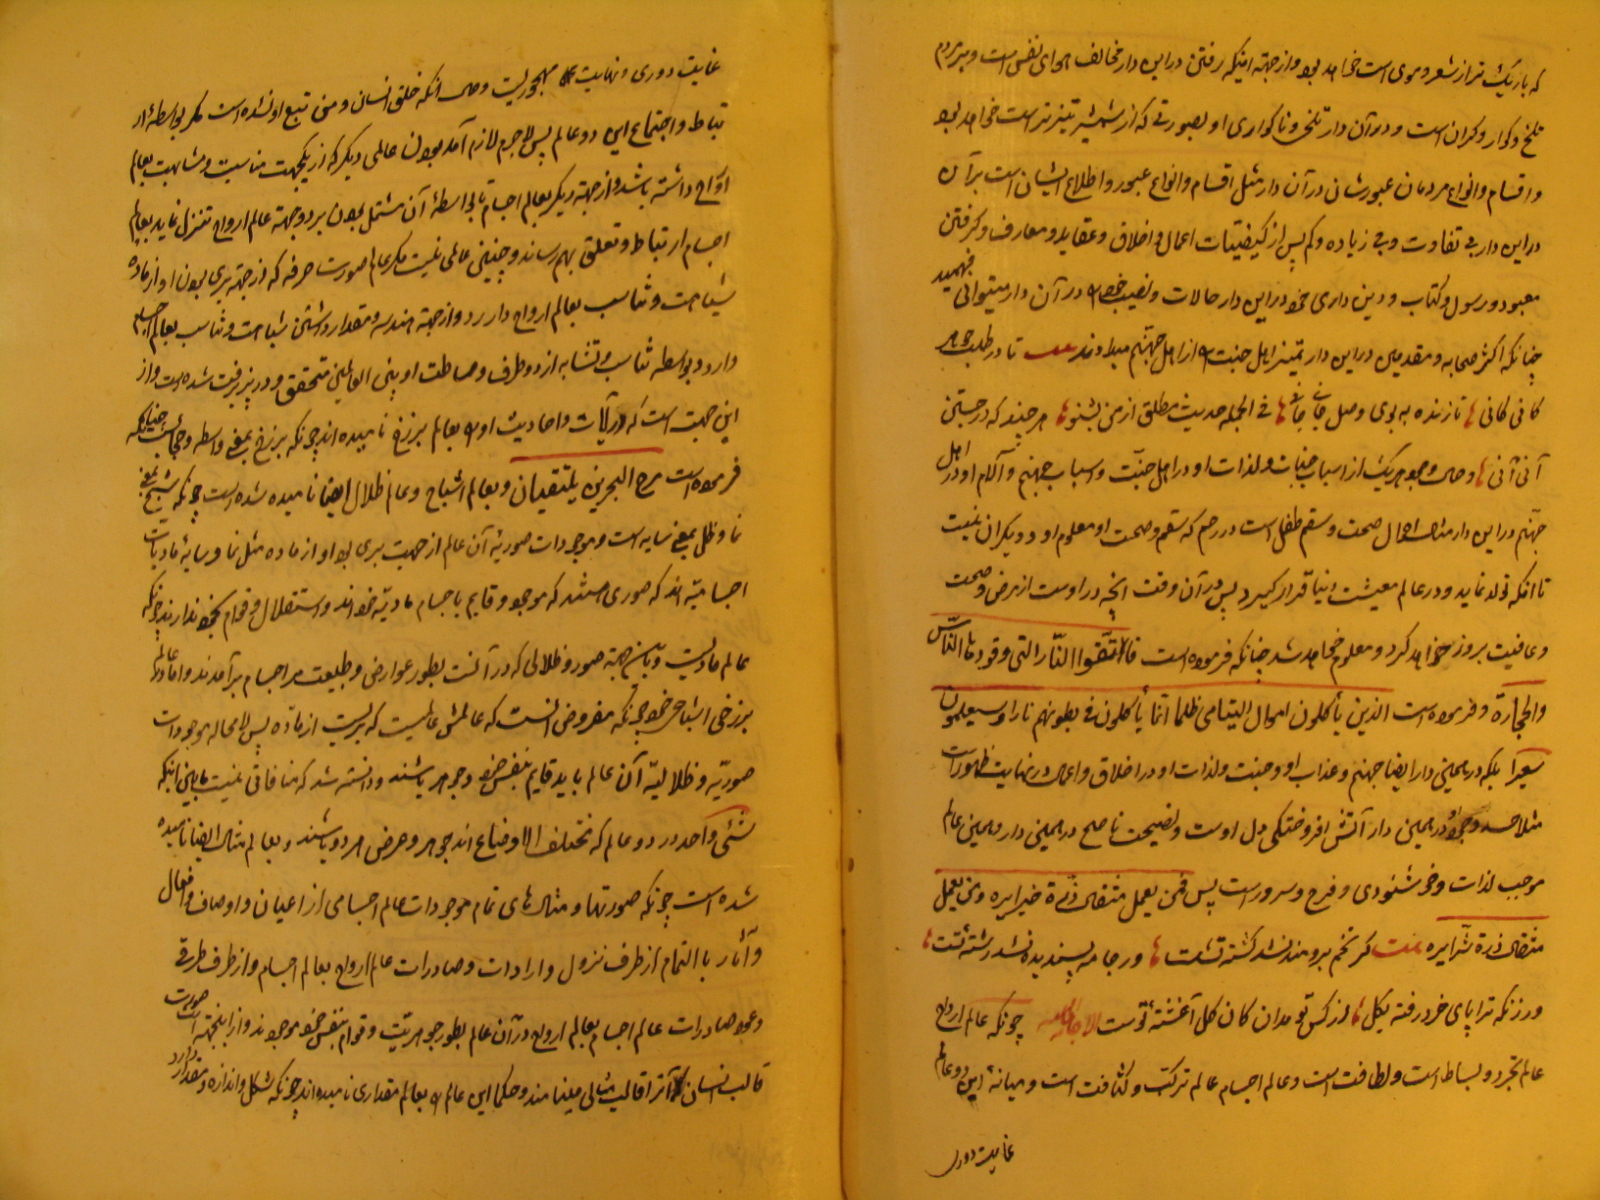 که باریک‌تر از شعر و موی است خواهد بود و از جهة اینکه رفتن در این دار مخالف هوای نفس است و بر مردم
تلخ و کران است و در آن دار تلخی و ناکواری او بصورتی که از شمشیر تیزتر است خواهد بود
و اقسام و انواع مردمان عبورشان در آن دار مثل اقسام و انواع عبور و اطلاع ایشان است بر آن
در این دار بی تفاوت و بی زیاده و کم پس از کیفیتات اعمال و اخلاق و عقاید و معارف و کرفتن
معبود و رسول و کتاب و دین داری خود در این دار حالات و نصیب خود را در آن دار میتوانی فهمید
چنانکه اکثر صحابه و مقدمین در این دار تمیز اهل جنت را از اهل جهنم میدادند تا در طلب جوهر
کانی کانی تا زنده به بوی وصل جانی جانی فی الجمله حدیث مطلق از من بشنو هر چیز که در جستن
آنی آنی و وجود هر یک از اسباب جنت و لذات او در اهل جنت و اسباب جهنم و آلام او در اهل
جهنم در این دار مثل احوال صحت و سقم طفل است در رحم که سقم و صحت او معلوم او و دیکران نیست
تا آنکه تولد نماید و در عالم معیشت دنیا قرار کیرد پس در آن وقت آنچه در اوست از مرض و صحت
و عافیت بروز خواهد کرد و معلوم خواهد شد چنانکه فرموده است فاتقوا النار التی وقودها الناس
والحجارة و فرموده است الذین یأکلون اموال الیتامی ظلما انما یأکلون فی بطونهم نارا و سیصلون
سعیرا بلکه در همین دار ایضا جهنم و عذاب او و جنت و لذات او در اخلاق و اعمال در نهایت ظهور است
مثلا حسد در همین دار آتش افروختکی دل اوست و نصیحت ناصح در همین دار و همین عالم
موجب لذات و خوشنودی و فرح و سرور است پس فمن یعمل مثقال ذرة خیرا یره و من یعمل
مثقال ذرة شرا یره بیت کر تخم برومند نشد کشته تست ور جامه پسندیده نشد رشته تست
ور زنکه ترا پای خرد رفته بکل از کس تو مدان کان کل آغشته تست چونکه عالم ارواح
عالم تجرد و بساطت و لطافت است و عالم اجسام عالم ترکب و کثافت است و میانه این دو عالم
غایت دوری
غایت دوری و نهایت مهجوریت و حال آنکه خلق انسان و من تبع او نشده است مکر بواسطه ار
تباط و اجتماع این دو عالم پس لاجرم لازم آمد بودن عالمی دیکر که از یکجهت مناسبت و مشابهت بعالم
ارواح داشته باشد و از جهة دیکر بعالم اجسام تا بواسطه آن مشتمل بودن بر دو جهة عالم ارواح تنزل نماید بعالم
اجسام ارتباط و تعلق بهم رساند و چنین عالمی نیست مکر عالم صورت صرفه که از جهة بری بودن او از ماده
شباهت و تناسب بعالم ارواح دارد و از جهة هندسه و مقدار داشتن شباهت و تناسب بعالم اجسام
دارد و بواسطه تناسب و تشابه از دو طرف وساطت او بین العالمین متحقق و درپذیرفت شده است و از
این جهت است که در آیات و احادیث او را بعالم برزخ نامیده اند چونکه برزخ بمعنی واسطه و حجابست چنانکه
فرموده است مرج البحرین یلتقیان و بعالم اشباح و عالم ظلال ایضا نامیده شده است چونکه شبح بمعنی
نما و ظل بمعنی سایه است و موجودات صوریه آن عالم از جهت بری بودن او از ماده مثل نما و سایه مادیات
اجسامیه اند که صوری هستند که موجود و قایم باجسام مادیه خود اند و استقلال و قوام بخود ندارند چونکه
عالم مادیست و باین جهة صور و ظلالی که در آنست بطور عوارض و طبیعت بر اجسام برآمدند و اما در عالم
برزخی اشباحی خود چونکه مفروض آنست که عالمش عالمیست که بریست از ماده پس لامحاله موجودات
صوریه و ظلالیه آن عالم باید قایم بنفس خود و جوهر باشند و دانسته شد که منافاتی نیست مابین اینکه
شئی واحد در دو عالم که مختلف الاوضاع اند جوهر و عرض هر دو باشند و بعالم مثال ایضا نامیده
شده است چونکه صورتها و مثالهای تمام موجودات عالم اجسامی از اعیان و اوصاف و افعال
و آثار بالتمام از طرف نزول واردات و صادرات عالم ارواح بعالم اجسام و از طرف طرقی
و عود صادرات عالم اجسام بعالم ارواح در آن عالم بطور جوهریت و قوام بنفس خود موجودند و از اینجهة است صورت
قالب انسان را آنرا قالب مثالی مینامند و حکما این عالم را بعالم مقداری نامیده اند چونکه شکل و اندازه و مقدار دارد